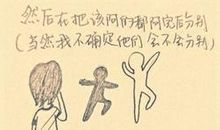 然后在把该阿的都阿完后分别
(当然我不确定他们会不会分别)